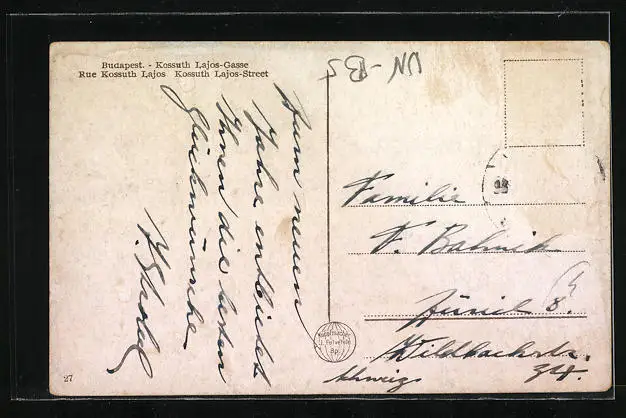 Budapest. - Kossuth Lajos-Gasse
Rue Kossuth Lajos Kossuth Lajos-Street
Zum neuen
Jahre entbietet
Ihnen die besten
Glückwünsche
Familie
F.
Zürich 8.
Wildbachstr.
Schweiz
27